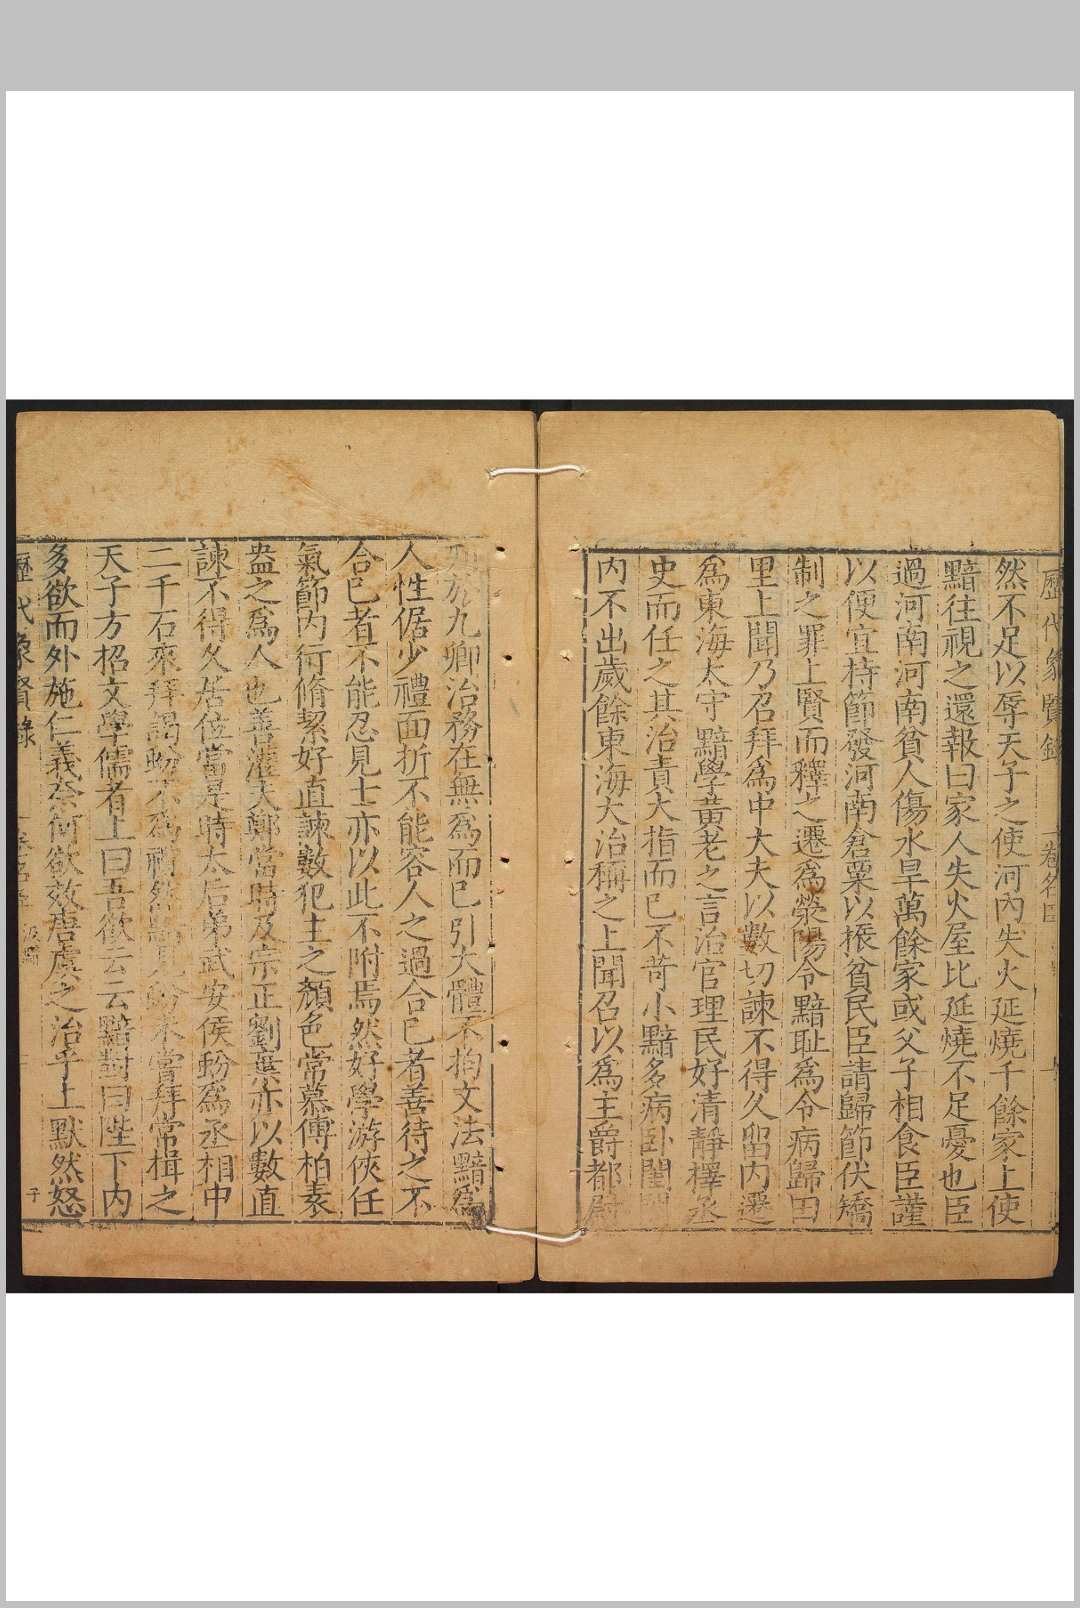 歷代象賢錄
卷名臣
然不足以辱天子之使河內失火延燒千餘家上使
黯往視之還報曰家人失火屋比延燒不足憂也臣
過河南河南貧人傷水旱萬餘家或父子相食臣謹
以便宜持節發河南倉粟以振貧民臣請歸節伏矯
制之罪上賢而釋之遷爲滎陽令黯恥爲令病歸田
里上聞乃召拜爲中大夫以數切諫不得久留內遷
爲東海太守黯學黃老之言治官理民好清靜擇丞
史而任之其治責大指而已不苛小黯多病卧閨閤
內不出歲餘東海大治稱之上聞召以爲主爵都尉
列於九卿治務在無爲而已引大體不拘文法黯爲
人性倨少禮面折不能容人之過合己者善待之不
合己者不能忍見士亦以此不附焉然好學游俠任
氣節內行脩潔好直諫數犯主之顏色常慕傅柏袁
盎之爲人也善灌夫鄭當時及宗正劉棄亦以數直
諫不得久居位當是時太后弟武安侯蚡爲丞相中
二千石來拜謁蚡不爲禮然黯見蚡未嘗拜常楫之
天子方招文學儒者上曰吾欲云云黯對曰陛下內
多欲而外施仁義奈何欲效唐虞之治乎上默然怒
歷代象賢錄
汲黯